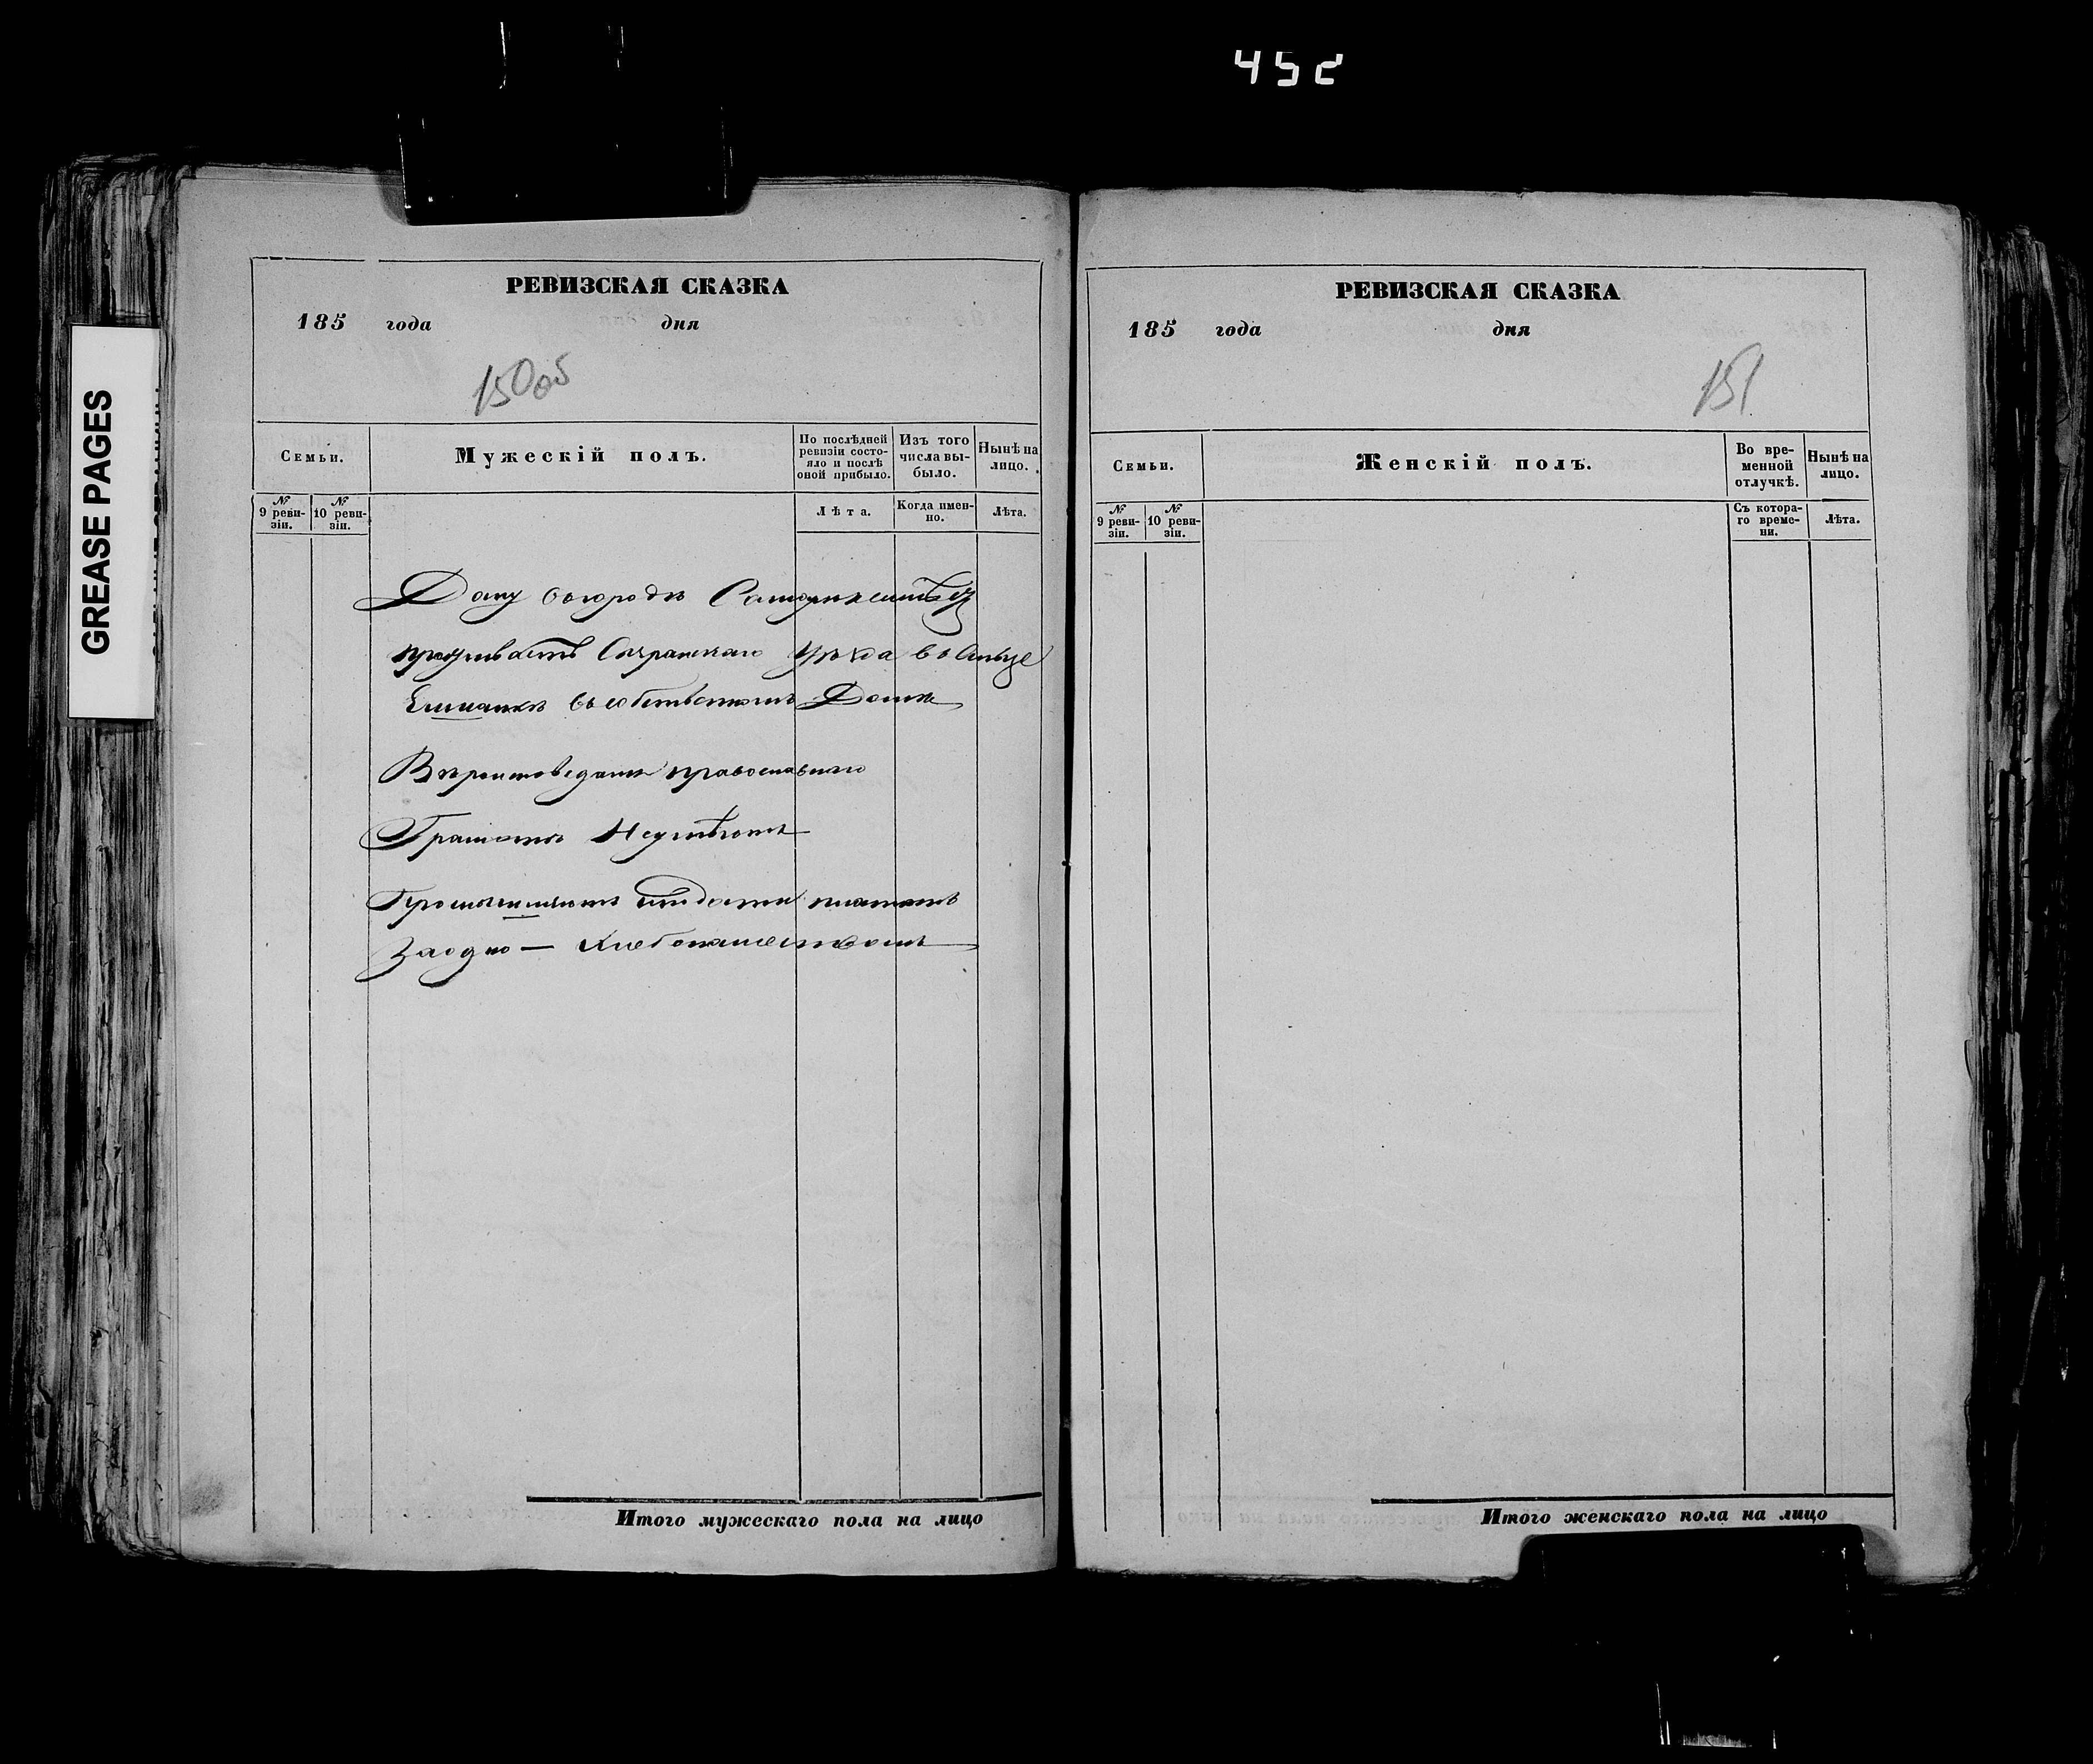 452
GREASE PAGES
РЕВИЗСКАЯ СКАЗКА
185 года дня
150 об
Семьи.
Мужескій полъ.
По послѣдней ревизіи состояло и послѣ оной прибыло.
Изъ того числа выбыло.
Нынѣ на лицо.
№ 9 ревизіи.
№ 10 ревизіи.
Лѣта.
Когда именно.
Лѣта.
Дому въ городѣ Самаре не имѣет
проживаетъ Сызранскаго уѣзда въ Сельце
въ собственномъ Доме
Вѣроисповеданія православнаго
Грамотѣ Неумѣютъ
подати платитъ
Заодно — Хлебопашествомъ
Итого мужескаго пола на лицо
РЕВИЗСКАЯ СКАЗКА
185 года дня
151
Семьи.
Женскій полъ.
Во временной отлучкѣ.
Нынѣ на лицо.
№ 9 ревизіи.
№ 10 ревизіи.
Съ котораго времени.
Лѣта.
Итого женскаго пола на лицо